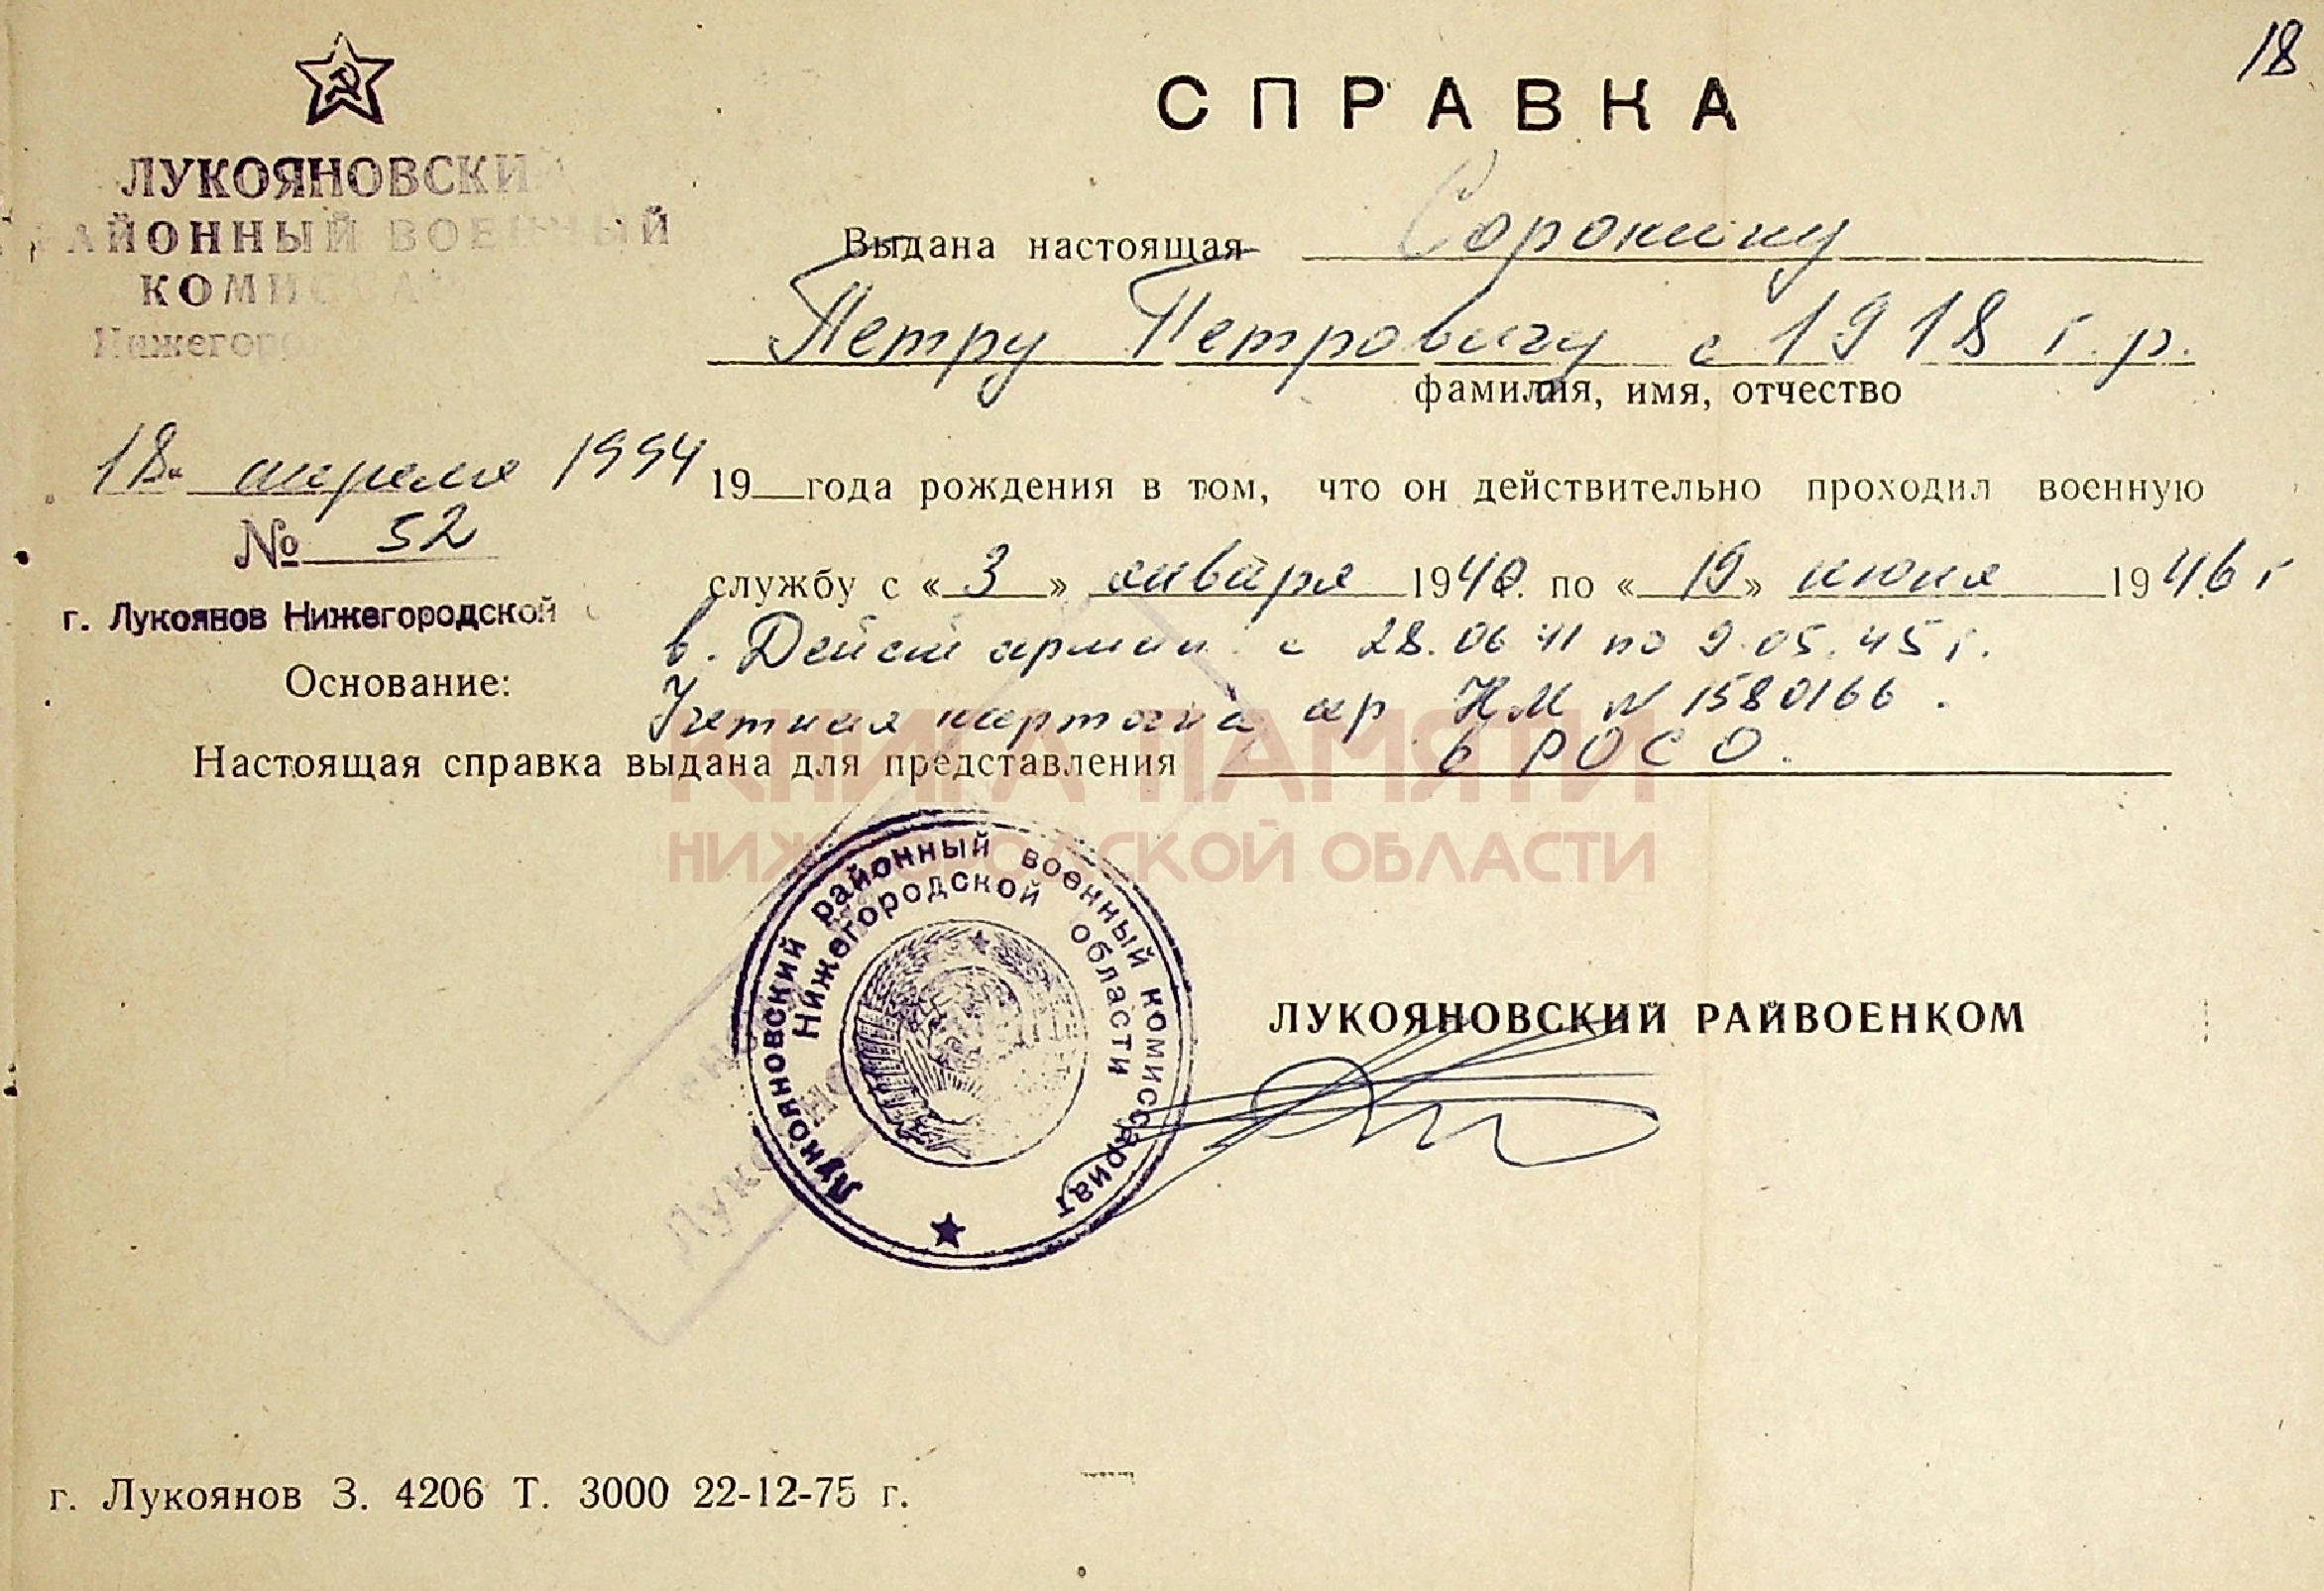 18
СПРАВКА
ЛУКОЯНОВСКИЙ
РАЙОННЫЙ ВОЕННЫЙ
КОМИССА
Нижегор
18 апреля 1994
№ 52
г. Лукоянов Нижегородской
Выдана настоящая Сорокину
Петру Петровичу с 1918 г.р.
фамилия, имя, отчество
19 года рождения в том, что он действительно проходил военную
службу с «3» января 1940. по «19» июня 1946 г
в. Дейст армии с 28.06 41 по 9.05.45 г.
Основание: Учетная карточка, ар НМ N 1580166.
Настоящая справка выдана для представления в РОСО.
КНИГА ПАМЯТИ
НИЖЕГОРОДСКОЙ ОБЛАСТИ
Лукояновский районный военный комиссариат
Нижегородской области
ЛУКОЯНОВСКИЙ РАЙВОЕНКОМ
г. Лукоянов З. 4206 Т. 3000 22-12-75 г.